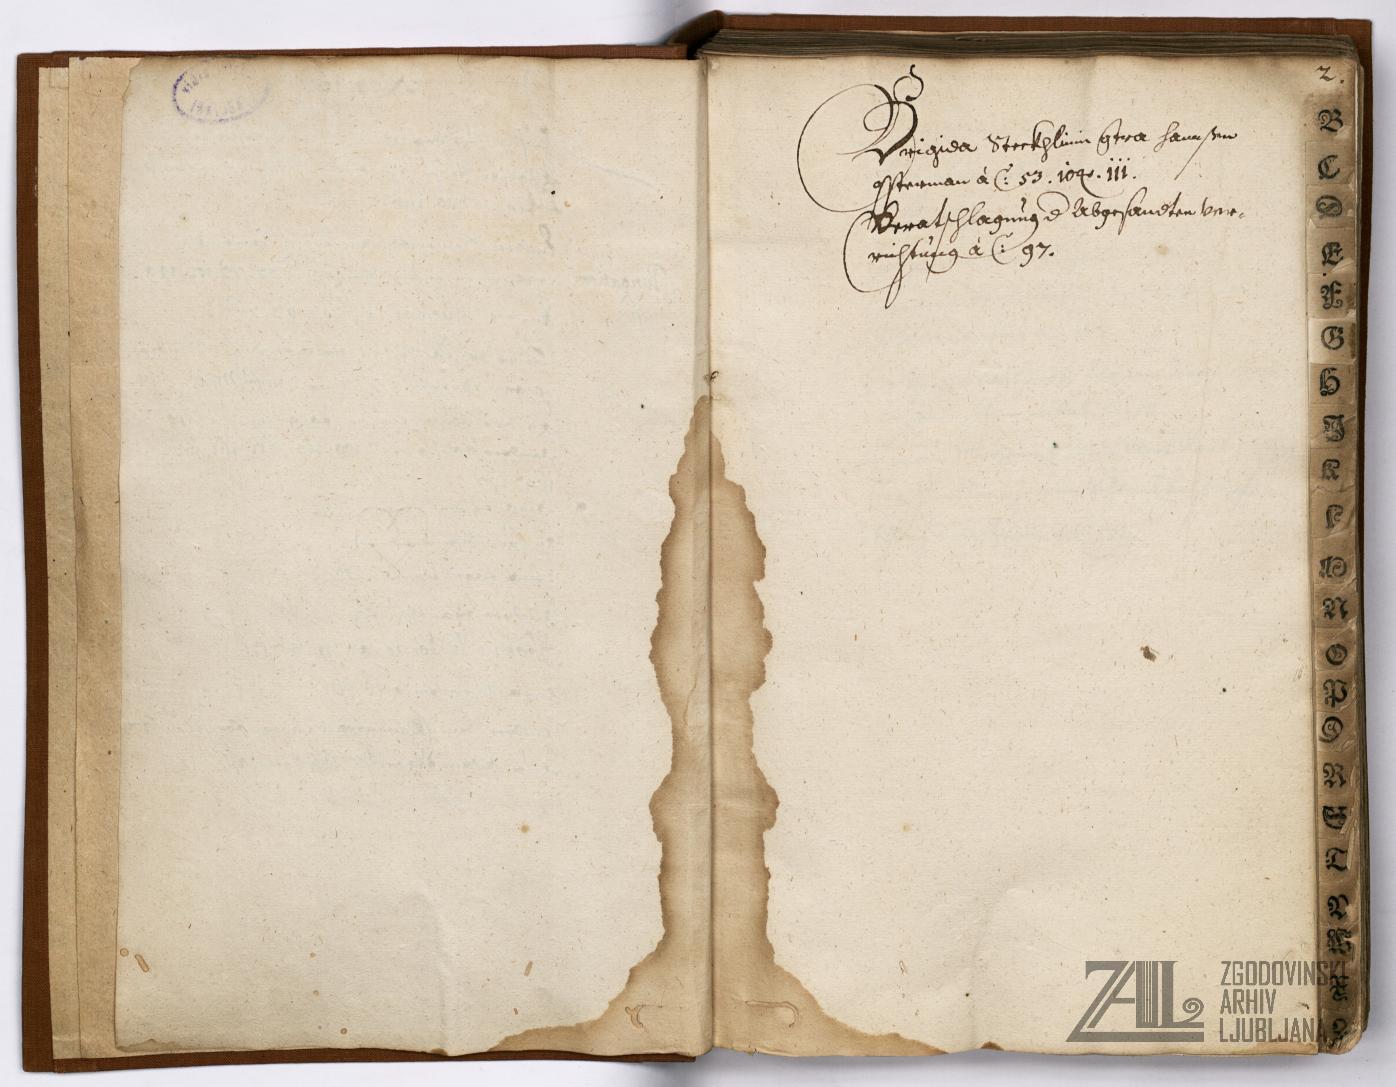 2.
Brigida Steckhlinin gtra Hannsen
Osterman à C: 53. 104. 111.
Beratschlagung d Abgesandten ver-
richtung à C: 97.
B
C
D
E
F
G
H
J
K
L
M
N
O
P
Q
R
S
T
V
W
ZAL
ZGODOVINSKI
ARHIV
LJUBLJANA